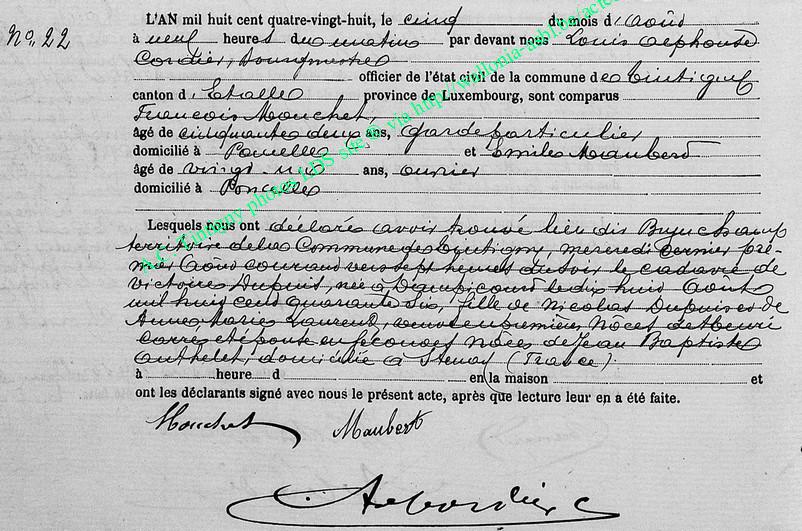 No. 22
L'AN mil huit cent quatre-vingt-huit, le cinq du mois d'Août
à neuf heures du matin par devant nous Louis Alphonse
Cordier, bourgmestre
officier de l'état civil de la commune de Tintigny
canton d'Etalle province de Luxembourg, sont comparus
François Mouchet,
âgé de cinquante deux ans, garde particulier
domicilié à Poncelle et Emile Maubert
âgé de vingt ans, ouvrier
domicilié à Poncelle
Lesquels nous ont déclaré avoir trouvé lieu dit
territoire de la Commune de Tintigny, mercredi dernier pre-
mier Août courant vers sept heures du soir le cadavre de
Victoire Dupuis, née à Dampicourt le dix huit Août
mil huit cent quarante six, fille de Nicolas Dupuis et de
Anne Marie Laurent, veuve en premières Nôces de Henri
Carré, et épouse en secondes Nôces de Jean Baptiste
Authelet, domiciliée à Stenay (France)
à heure d en la maison et
ont les déclarants signé avec nous le présent acte, après que lecture leur en a été faite.
Mouchet Maubert
A. Cordier
A.C. Tintigny photos LDS site © via http://wallonia-asbl.be/actes